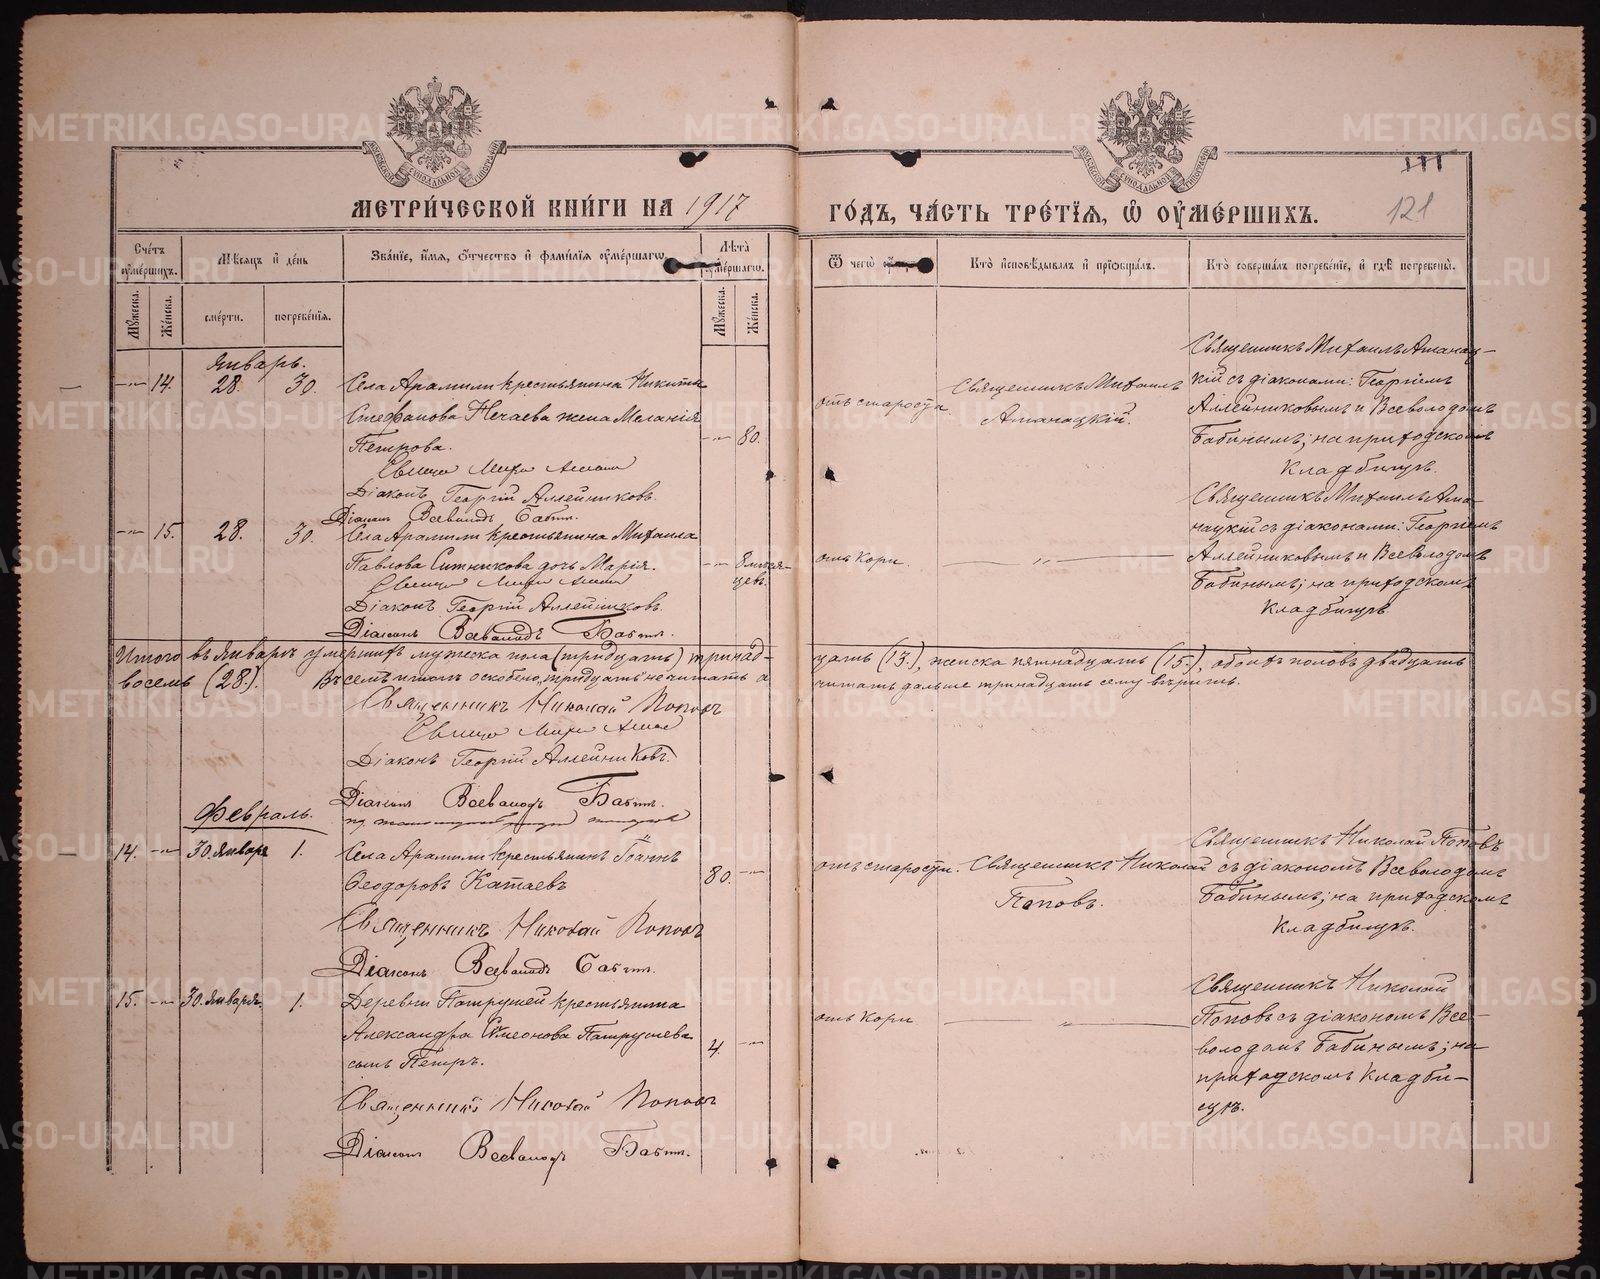 МЕТРИЧЕСКОЙ КНИГИ НА 1917
ГОДЪ, ЧАСТЬ ТРЕТІЯ, Ѡ ОУМЕРШИХЪ.
121
Счетъ оумершихъ.
Мѣсяцъ и день
Званіе, имя, отчество и фамилія оумершагѡ.
Лѣта оумершагѡ.
Ѿ чегѡ
Кто исповѣдывалъ и пріобщалъ.
Кто совершалъ погребеніе, и гдѣ погребены.
Мужеска.
Женска.
смерти.
погребенія.
Мужеска.
Женска.
Январь.
14. 28 30.
Села Арамили крестьянина Никиты
Стефанова Нечаева жена Меланія
Петрова.
80.
отъ старости
Священникъ Михаилъ
Аманацкій.
Священникъ Михаилъ Аманац-
кій съ діаконами: Георгіемъ
Аллейниковымъ и Всеволодомъ
Бабинымъ; на приходскомъ
кладбищѣ.
Діаконъ Георгій Аллейниковъ.
Діаконъ Всеволодъ Бабинъ.
15. 28. 30.
Села Арамили крестьянина Михаила
Павлова Ситникова дочь Марія.
8 мѣся-
цевъ.
отъ кори
Священникъ Михаилъ Ама-
нацкій съ діаконами: Георгіемъ
Аллейниковымъ и Всеволодомъ
Бабинымъ; на приходскомъ
кладбищѣ
Діаконъ Георгій Аллейниковъ.
Діаконъ Всеволодъ Бабинъ.
Итого въ Январѣ умершихъ мужеска пола (тридцать) тринад-
цать (13.), женска пятнадцать (15.), обоихъ половъ двадцать
восемь (28.). Въ семъ итогѣ оскоблено, тридцать не читать а
читать дальше тринадцать сему вѣрить.
Священникъ Николай Поповъ
Діаконъ Георгій Аллейниковъ.
Діаконъ Всеволодъ Бабинъ.
Февраль.
14. 30. Января 1.
Села Арамили крестьянинъ Іоаннъ
Ѳеодоровъ Катаевъ
80.
отъ старости.
Священникъ Николай
Поповъ.
Священникъ Николай Поповъ
съ діакономъ Всеволодомъ
Бабинымъ; на приходскомъ
кладбищѣ.
Священникъ Николай Поповъ
Діаконъ Всеволодъ Бабинъ.
15. 30. Января. 1.
Деревни Патрушей крестьянина
Александра Симеонова Патрушева
сынъ Петръ.
4.
отъ кори
Священникъ Николай
Поповъ съ діакономъ Все-
володомъ Бабинымъ; на
приходскомъ кладби-
щѣ.
Священникъ Николай Поповъ
Діаконъ Всеволодъ Бабинъ.
METRIKI.GASO-URAL.RU